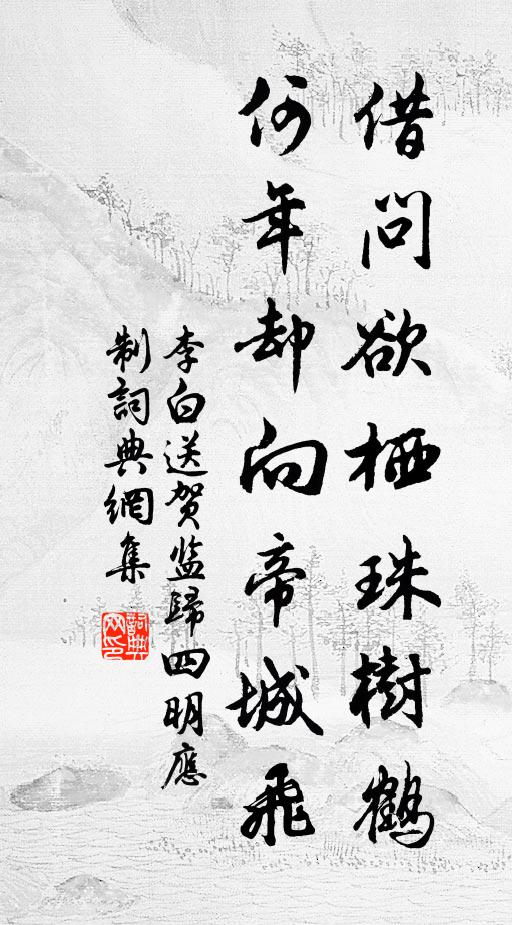 借问欲栖珠樹鶴
何年却向帝城飛
李白送贺监歸四明應
制詞典網集
詞典网印